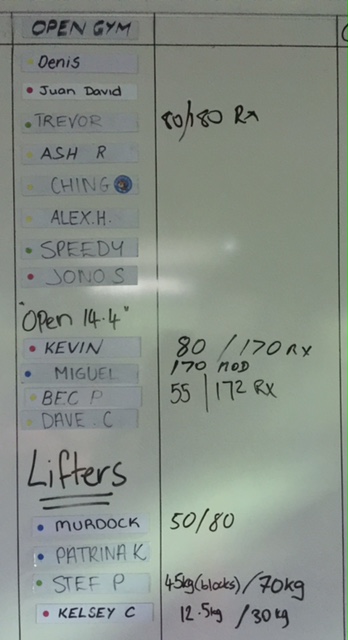 OPEN GYM
Denis
Juan David
TREVOR 80/180 Rx
ASH R
CHING
ALEX.H.
SPEEDY
JONO S
"Open 14.4"
KEVIN 80 / 170 RX
MIGUEL 170 MOD
BEC P 55 | 172 RX
DAVE.C
Lifters
MURDOCK 50/80
PATRINA K
STEF P 45kg (blocks) / 70kg
KELSEY C 12.5kg / 30kg